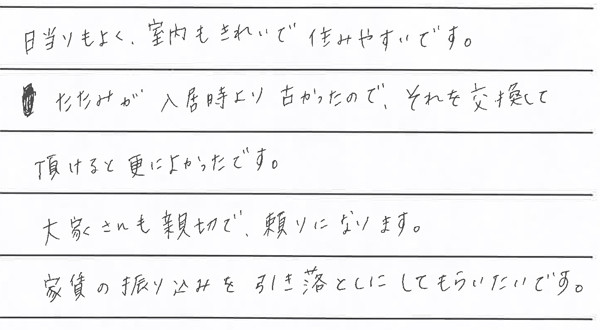 日当りもよく、室内もきれいで住みやすいです。
たたみが入居時より古かったので、それを交換して
頂けると更によかったです。
大家さんも親切で、頼りになります。
家賃の振り込みを引き落としにしてもらいたいです。